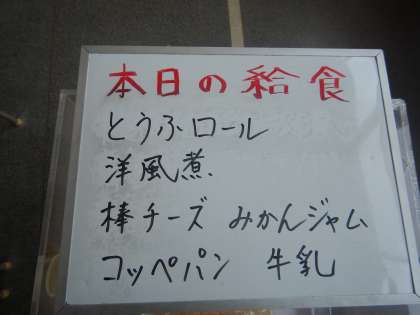 本日の給食
とうふロール
洋風煮
棒チーズ みかんジャム
コッペパン 牛乳